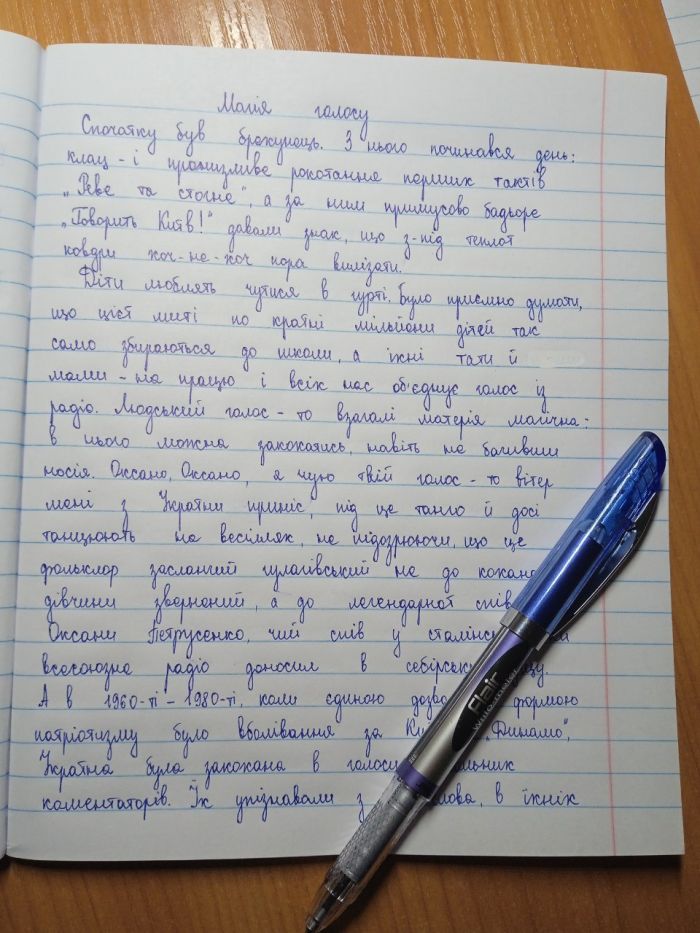 Магія голосу
Спочатку був брехунець. З нього починався день:
клац - і пронизливе рокотання перших тактів
„Реве та стогне", а за ним примусово бадьоре
„Говорить Київ!" давали знак, що з-під теплої
ковдри хоч-не-хоч пора вилізати.
Діти люблять чутися в гурті. Було приємно думати,
що цієї миті по країні мільйони дітей так
само збираються до школи, а їхні тати й
мами - на працю і всіх нас об'єднує голос із
радіо. Людський голос - то взагалі матерія магічна:
в нього можна закохатись, навіть не бачивши
носія. Оксано, Оксано, я чую твій голос - то вітер
мені з України приніс, під це танго й досі
танцюють на весіллях, не підозрюючи, що це
фольклор засланий гулагівський не до кохано
дівчини звернений, а до легендарної спів
Оксани Петрусенко, чий спів у сталінськ
всесоюзне радіо доносил в себірськ
А в 1960-ті - 1980-ті, коли єдиною дозв формою
патріотизму було вболівання за Ки „Динамо",
Україна була закохана в голоси
коментаторів. Їх упізнавали з лова, в їхніх
Flair